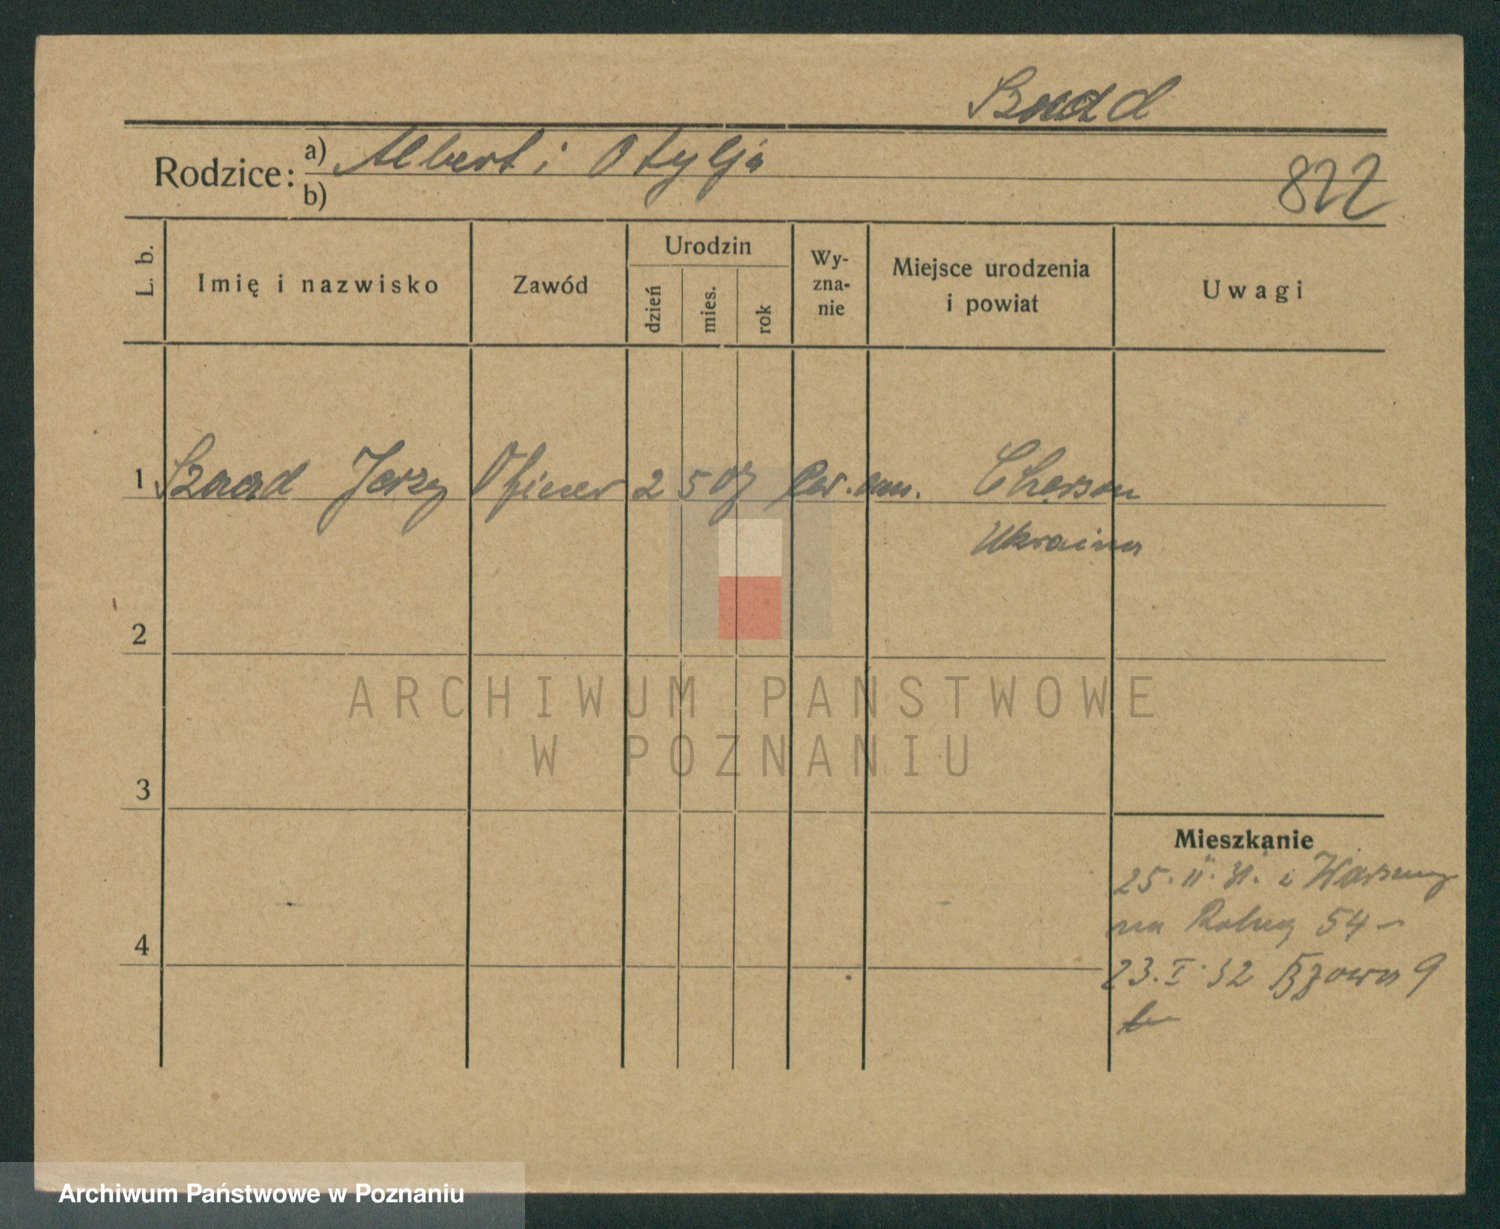 Szaad
Rodzice: a) Albert i Otylja
b)
822
L. b.
Imię i nazwisko
Zawód
Urodzin
dzień
mies.
rok
Wy-
zna-
nie
Miejsce urodzenia
i powiat
Uwagi
1 Szaad Jerzy Oficer 2 5 07 Cherson
Ukraina
2
3
4
Mieszkanie
25. II. 31. z Warszawy
na Rolną 54 –
23. I. 32 9
ARCHIWUM PAŃSTWOWE
W POZNANIU
Archiwum Państwowe w Poznaniu